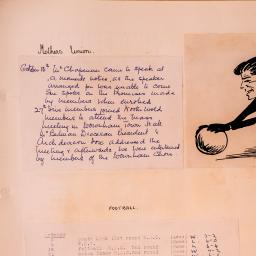 Mothers Union.
October 18th Mrs Chapman came to speak at
a moments notice, as the speaker
arranged for was unable to come
She spoke on the Promises made
by members when enrolled
27th Nine members joined North Wold
members to attend the mass
meeting in Downham Town Hall
Mrs Bedman Diocesan President &
Archdeacon addressed the
meeting & afterwards we were entertained
by members of the Downham Choir
FOOTBALL.